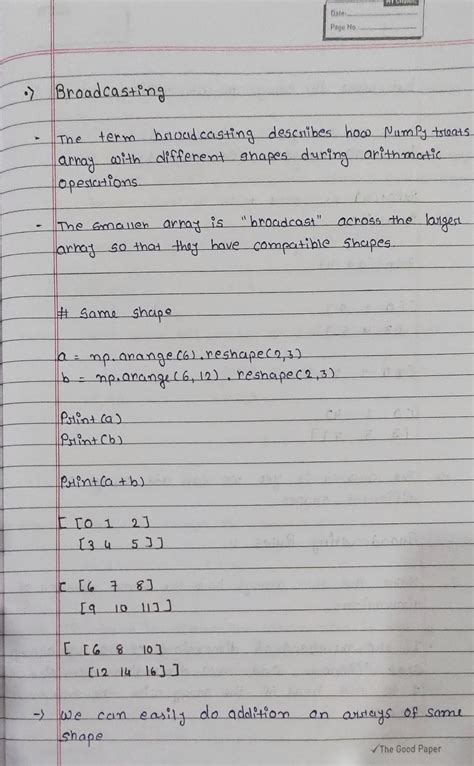 Date:
Page No.
•) Broadcasting
- The term broadcasting describes how NumPy treats
array with different shapes during arithmatic
operations.
- The smaller array is "broadcast" across the larger
array so that they have compatible shapes.
# Same shape
a = np.arange(6).reshape(2,3)
b = np.arange(6,12).reshape(2,3)
Print(a)
Print(b)
Print(a+b)
[ [0 1 2]
[3 4 5]]
[ [6 7 8]
[9 10 11]]
[ [6 8 10]
[12 14 16]]
→) We can easily do addition on arrays of same
shape
✓The Good Paper